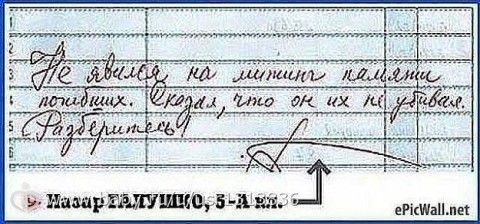 1
2
3 Не явился на митинг памяти
4 погибших. Сказал, что он их не убивал.
5 (Разберитесь!
6
9. Назар 5-А кл.
ePicWall.net